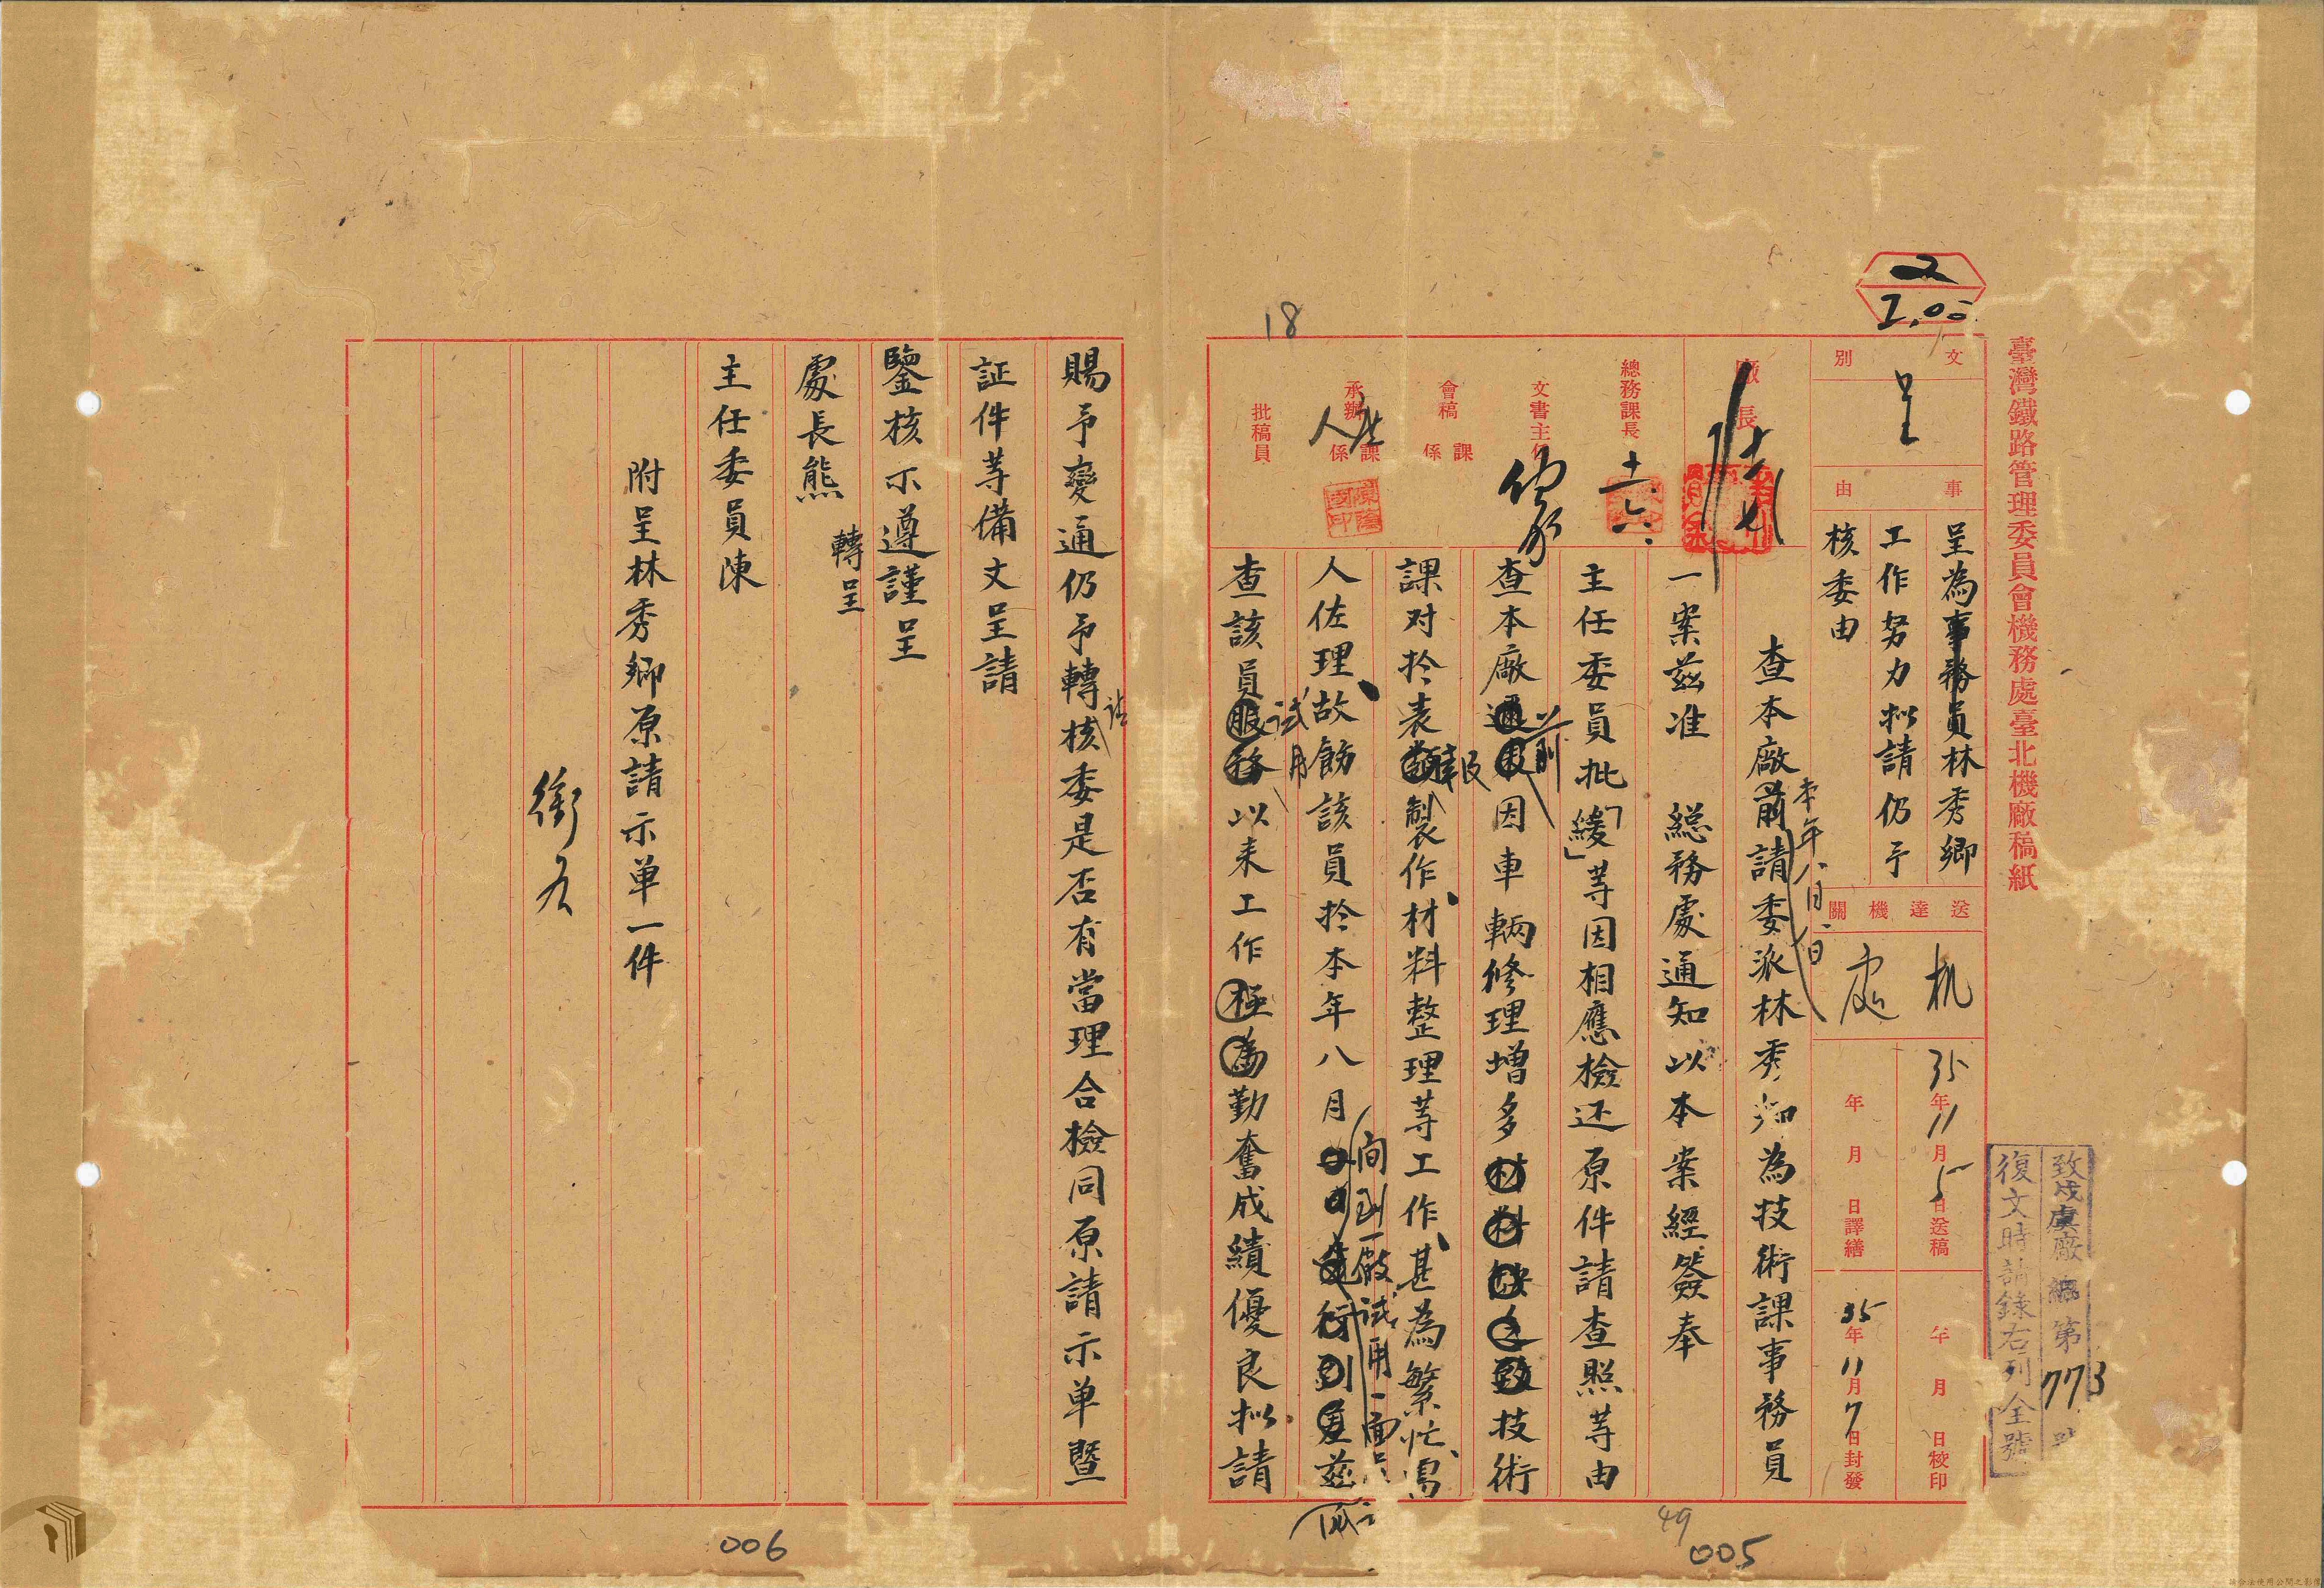 臺灣鐵路管理委員會機務處臺北機廠稿紙
致戌虞廠 第773號
復文時請錄右列全號
2
2.00
文別
呈
事由
呈為事務員林秀卿
工作努力擬請仍予
核委由
送達機關
机
處
35年11月5日送稿
年月日譯繕
年月日校印
35年11月7日封發
廠長
總務課長
十一、六、
文書主任
會稿 課 係
承辦 課 係
人
批稿員
查本廠前請委派林秀卿為技術課事務員
本年八月 日
一案茲准 總務處通知以本案經簽奉
主任委員批「緩」等因相應檢还原件請查照等由
查本廠 因車輛修理增多材料缺乏致技術
以前
課对於表 製作、材料整理等工作、甚為繁忙、需
報
人佐理、故飭該員於本年八月 日 茲
間到廠試用一面
查該員服務以来工作極為勤奮成績優良擬請
試用
賜予變通仍予轉核委是否有當理合檢同原請示单暨
請
証件等備文呈請
鑒核示遵謹呈
處長熊 轉呈
主任委員陳
附呈林秀卿原請示单一件
銜名
18
49
005
006